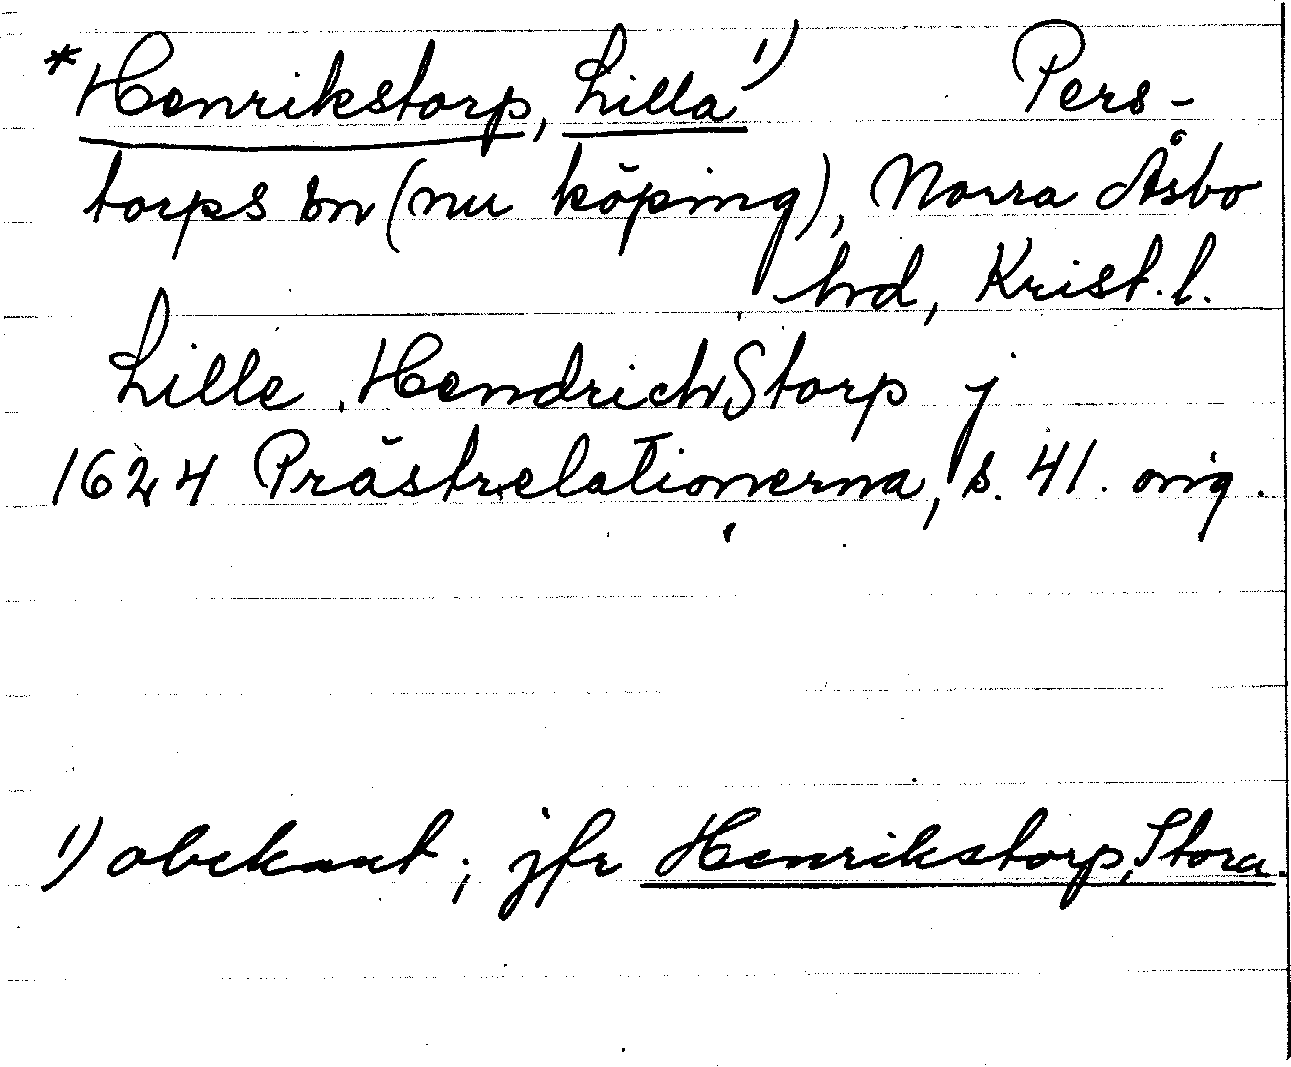 *Henrikstorp, Lilla 1) Pers-
torps sn (nu köping), Norra Åsbo
hd, Krist. l.
Lille HendrichStorp j
1624 Prästrelationerna, s. 41. orig.
1) obekant; jfr Henrikstorp, Stora.